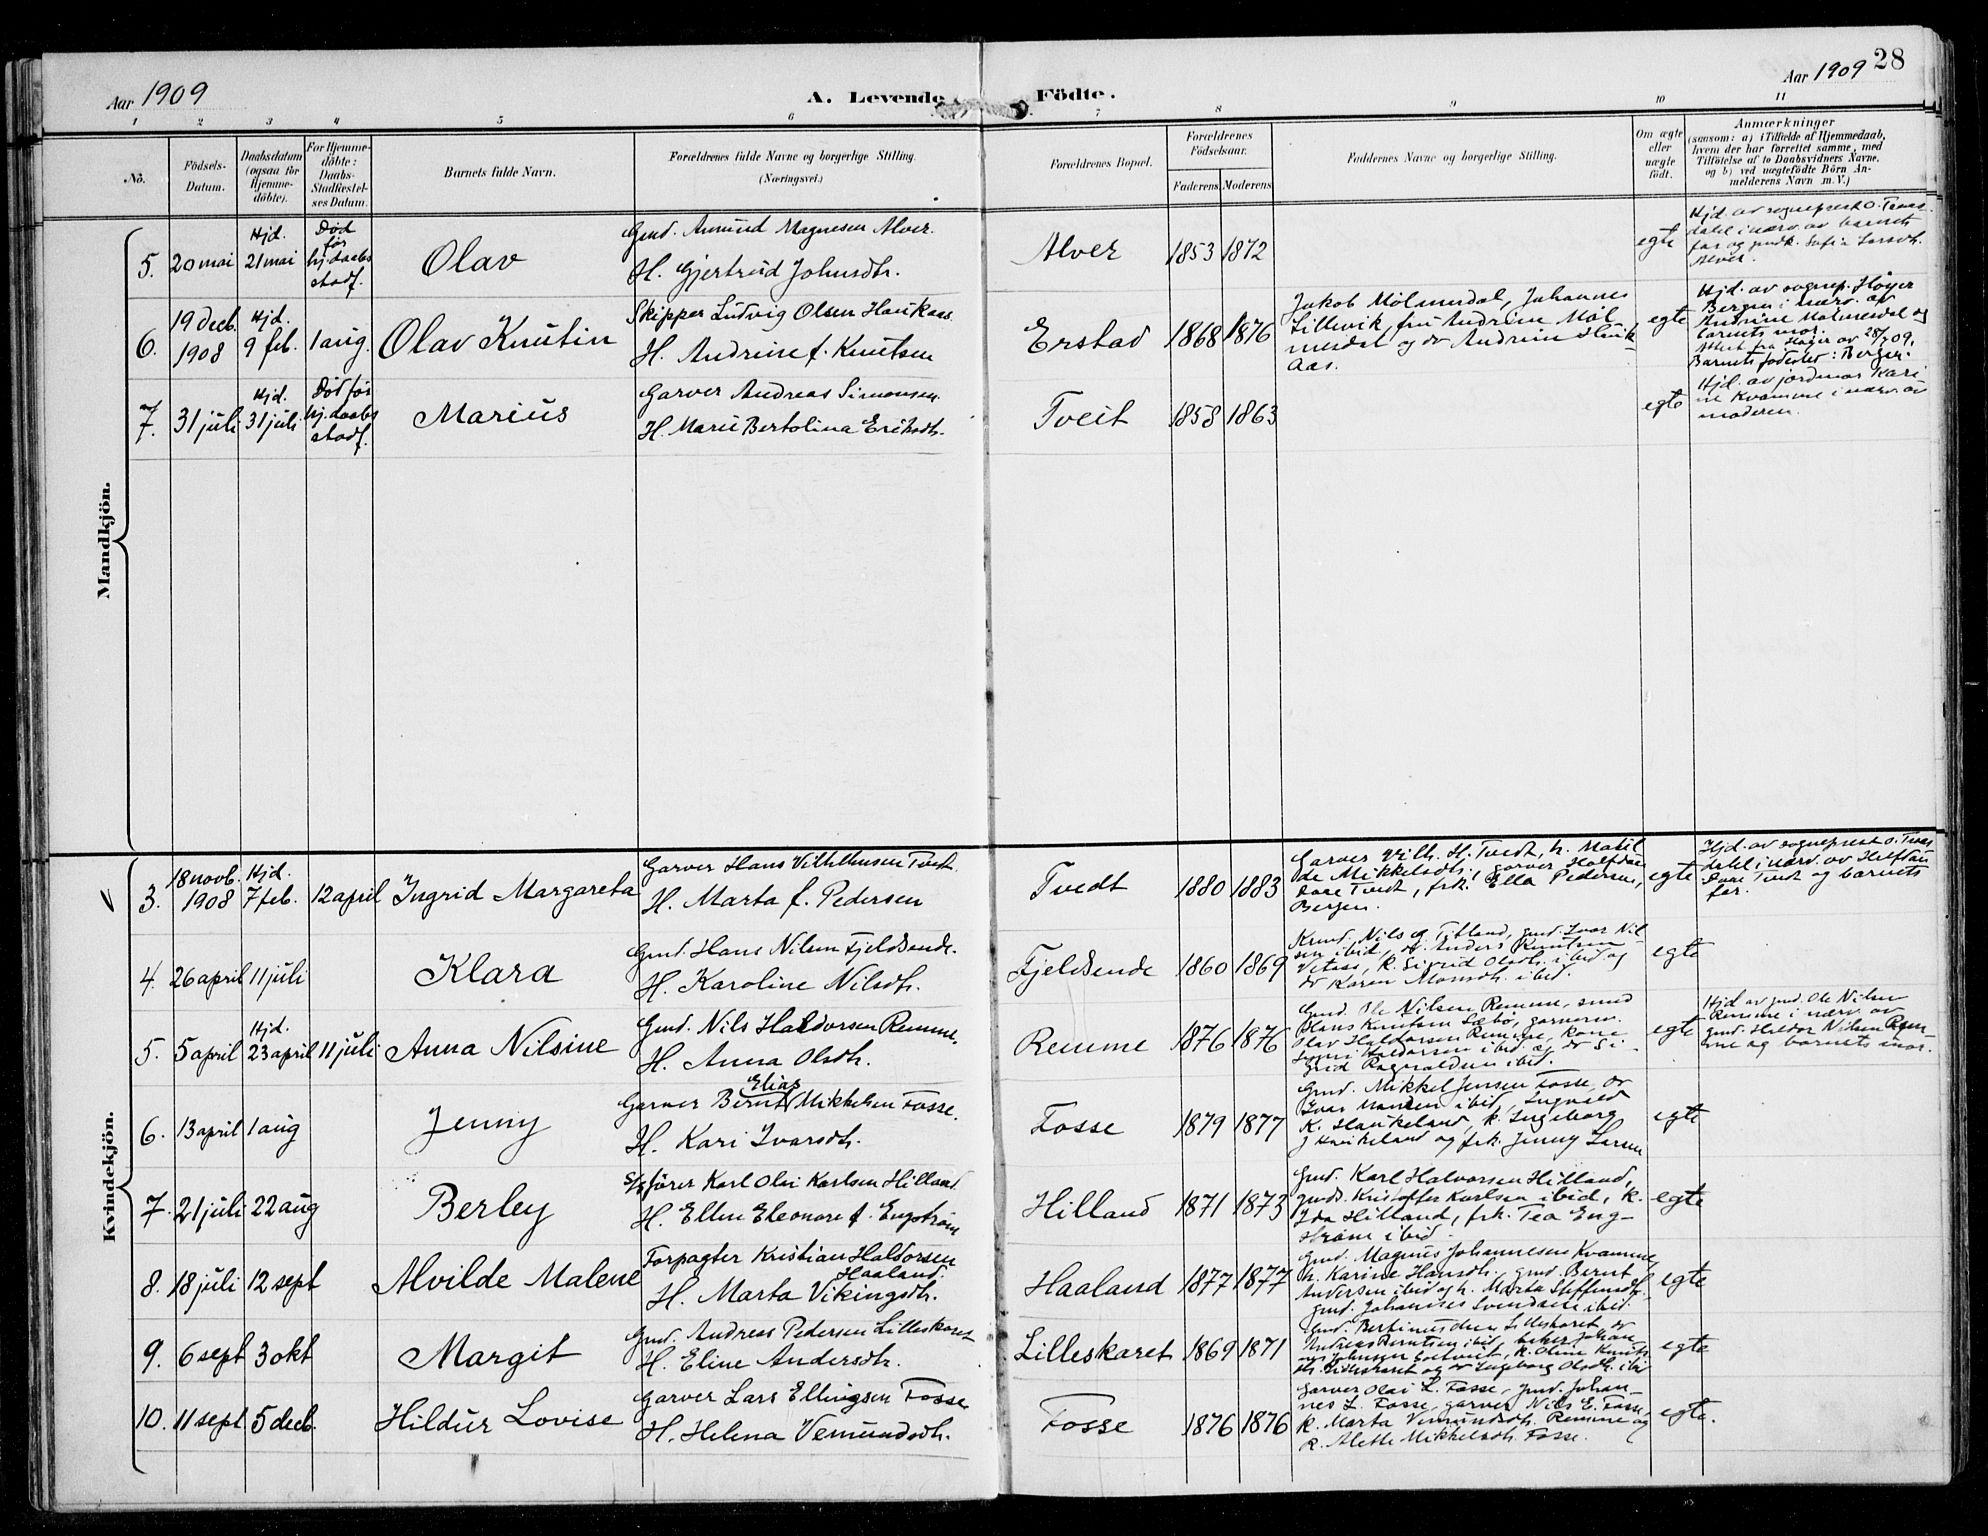 Aar 1909
A. Levende Födte.
Aar 1909 28
1 2 3 4 5 6 7 8 9 10 11
No.
Födsels-Datum.
Daabsdatum (ogsaa for Hjemme-döbte).
For Hjemme-döbte: Daabs-Stadfæstel-ses Datum.
Barnets fulde Navn.
Forældrenes fulde Navne og borgerlige Stilling. (Næringsvei.)
Forældrenes Bopæl.
Forældrenes Födselsaar.
Faderens Moderens
Faddernes Navne og borgerlige Stilling.
Om ægte eller uægte födt.
Anmærkninger
(saasom: a) i Tilfælde af Hjemmedaab, hvem der har forrettet samme, med Tilföielse af to Daabsvidners Navne, og b) ved uægtefödte Börn An-melderens Navn m. V.)
Mandkjön.
5. 20 mai
Hjd. 21 mai
Død før hj.daabs stadf.
Olav
Gmd. Amund Magnesen Alver.
H. Gjertrud Johnsdtr.
Alver 1853 1872
egte
Hjd. av sogneprest O. Tvedt-
dahl i nærv. av barnets
far og
Alver.
6. 19 decb. 1908
Hjd. 9 feb.
1 aug.
Olav Knutin
Skipper Ludvig Olsen Haukaas
H. Andrine f. Knutsen
Erstad 1868 1876
Jakob Mølmerdal, Johannes
Lillevik, fru Andrine Møl
merdal og dr Andrine Hauk-
Aas.
egte
Hjd. av sognep. Høyer
Bergen i nærv. av
Andrine Mølmerdal og
barnets mor.
Attest fra Høyer av 28/7 09.
Barnets fødested: Bergen.
7. 31 juli
Hjd. 31 juli
Død før hj.daabs stadf.
Marius
Garver Andreas Simonsen
H. Marie Bertolina Eriksdtr.
Tveit 1858 1863
egte
Hjd. av jordmor Kari
Kvamme i nærv. av
moderen.
Kvindekjön.
3. 18 novb. 1908
Hjd. 7 feb.
12 april
Ingrid Margareta
Garver Hans Vilhelmsen Tvedt
H. Marta f. Pedersen
Tvedt 1880 1883
Garver Vilh. H. Tvedt, h. Matil
de Mikkelsdtr., garver Halfdan
Daae Tvedt, frk. Ella Pedersen,
Bergen.
egte
Hjd. av sogneprest O. Tvedt-
dahl i nærv. av Halfdan
Daae Tvedt og barnets
far.
4. 26 april 11 juli
Klara
Gmd. Hans Nilsen Fjeldsende.
H. Karoline Nilsdtr.
Fjeldsende 1860 1869
Nils Titland, gmd. Ivar Nil
sen ibid, Anders Knutsen
k. Sigrid Olsdtr. ibid og
dr Karen Monsdtr. ibid.
egte
5. 5 april
Hjd. 23 april
11 juli
Anna Nilsine
Gmd. Nils Haldorsen Remme.
H. Anna Olsdtr.
Remme 1876 1876
Gmd. Ole Nilsen Remme, smed
Hans Knutsen Sæbø,
Olav Haldorsen Remme, kone
Haldorsen ibid og dr Si-
grid Ragnaldsen ibid.
egte
Hjd av gmd. Ole Nilsen
Remme i nærv. av
gmd. Haldor Nilsen Rem-
me og barnets mor.
6. 13 april 1 aug
Jenny
Elias
Garver Bernt Mikkelsen Fosse.
H. Kari Ivarsdtr.
Fosse 1879 1877
Gmd. Mikkel Jensen Fosse, dr
Ivar ibid, Ingvald
K. Haukeland, k. Ingeborg
J Haukeland og frk. Jenny Larsen
egte
7. 21 juli 22 aug
Berley
S/sfører Karl Olai Karlsen Hilland
H. Ellen Eleonore f. Engstrøm
Hilland 1871 1873
Gmd. Karl Halvorsen Hilland,
gmds. Kristoffer Karlsen ibid, k.
Ida Hilland, frk. Tea Eng-
strøm ibid.
egte
8. 18 juli 12 sept
Alvilde Malene
Forpagter Kristian Haldorsen
Haaland.
H. Marta Vikingsdtr.
Haaland 1877 1877
Gmd. Magnus Johannesen Kvamme,
h. Karine Hansdtr., gmd. Bernt
Andersen ibid og h. Marta Steffensdtr.,
gmd. Johannes Svendsen ibid.
egte
9. 6 sept 3 okt
Margit
Gmd. Andreas Pedersen Lilleskaret
H. Eline Andersdtr.
Lilleskaret 1869 1871
Gmd. Bertinusden Lilleskaret, dr
Andreas Berntsen ibid, Johan
Johnsen k. Oline Knuts
dtr. Lilleskaret og dr Ingeborg Olsdtr. ibid
egte
10. 11 sept 5 decb.
Hildur Lovise
Garver Lars Ellingsen Fosse
H. Helena Vemundsdtr.
Fosse 1876 1876
Garver Olai L. Fosse, gmd. Johan-
nes L. Fosse, garver Nils E. Fosse
k. Marta Vemundsdtr. Remme og
k. Alette Mikkelsdtr. Fosse.
egte.